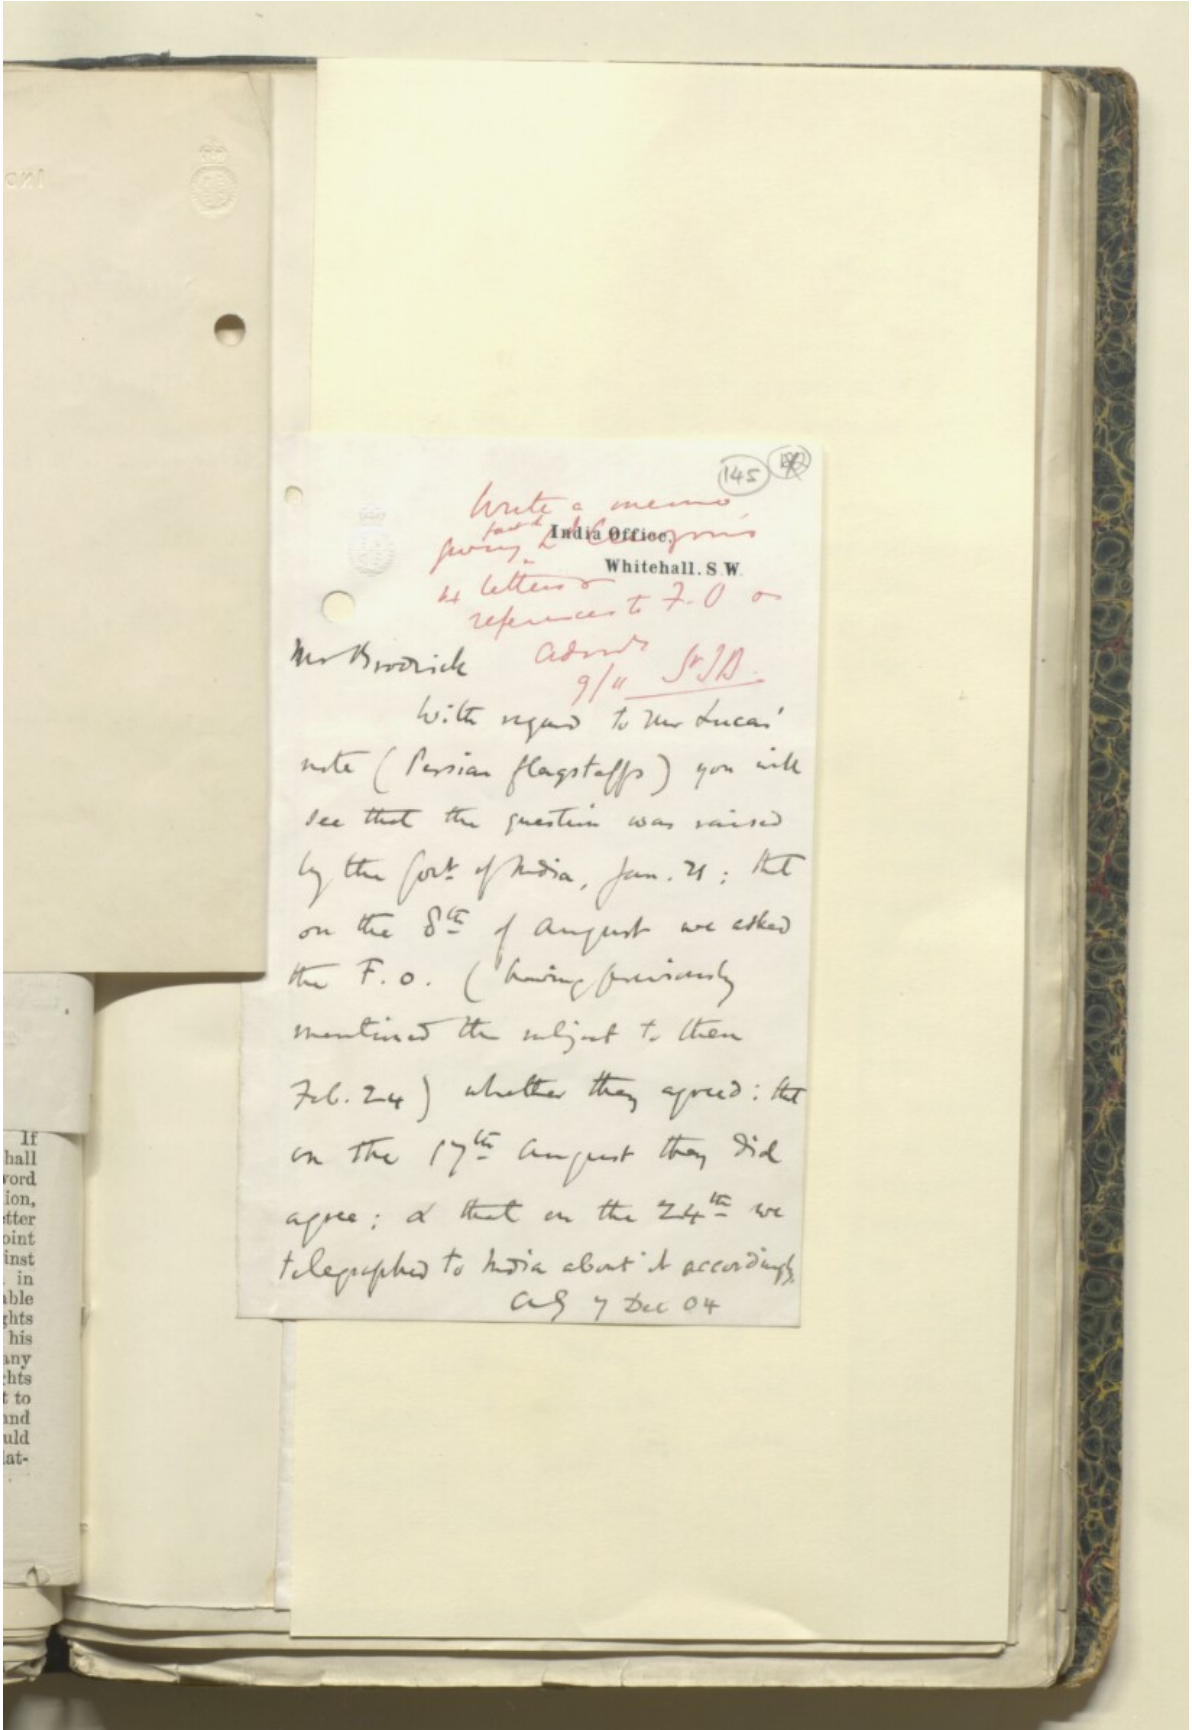 145
Write a memo
India Office,
giving Ld Curzon's
Whitehall. S.W.
letters &
references to F.O or
Admty
Mr Brodrick
9/11 StJB.
With regard to Mr Lucas'
note (Persian flagstaffs) you will
see that the question was raised
by the Govt. of India, Jan. 21; that
on the 8th of August we asked
the F.O. (having previously
mentioned the subject to them
Feb. 24) whether they agreed: that
on the 17th August they did
agree; & that on the 24th we
telegraphed to India about it accordingly.
7 Dec 04
If
hall
word
ion,
etter
oint
inst
in
able
ghts
his
any
hts
t to
and
uld
lat-